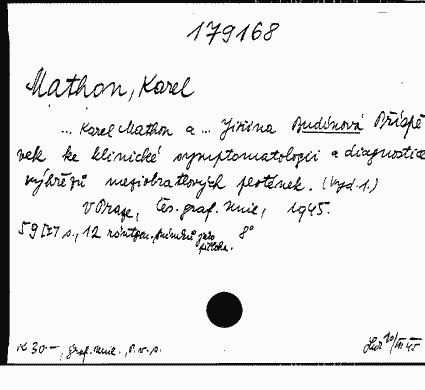 179168
Mathon, Karel
... Karel Mathon a ... Jiřina Budínová Příspě
vek ke klinické symptomatologii a diagnostice
výhřezů meziobratlových plotének. (Vyd. 1.)
V Praze, Čes. graf. Unie, 1945.
59 s., 12 röntgen. snímků jako 8°
příloha.
K 30.-, graf. unie.